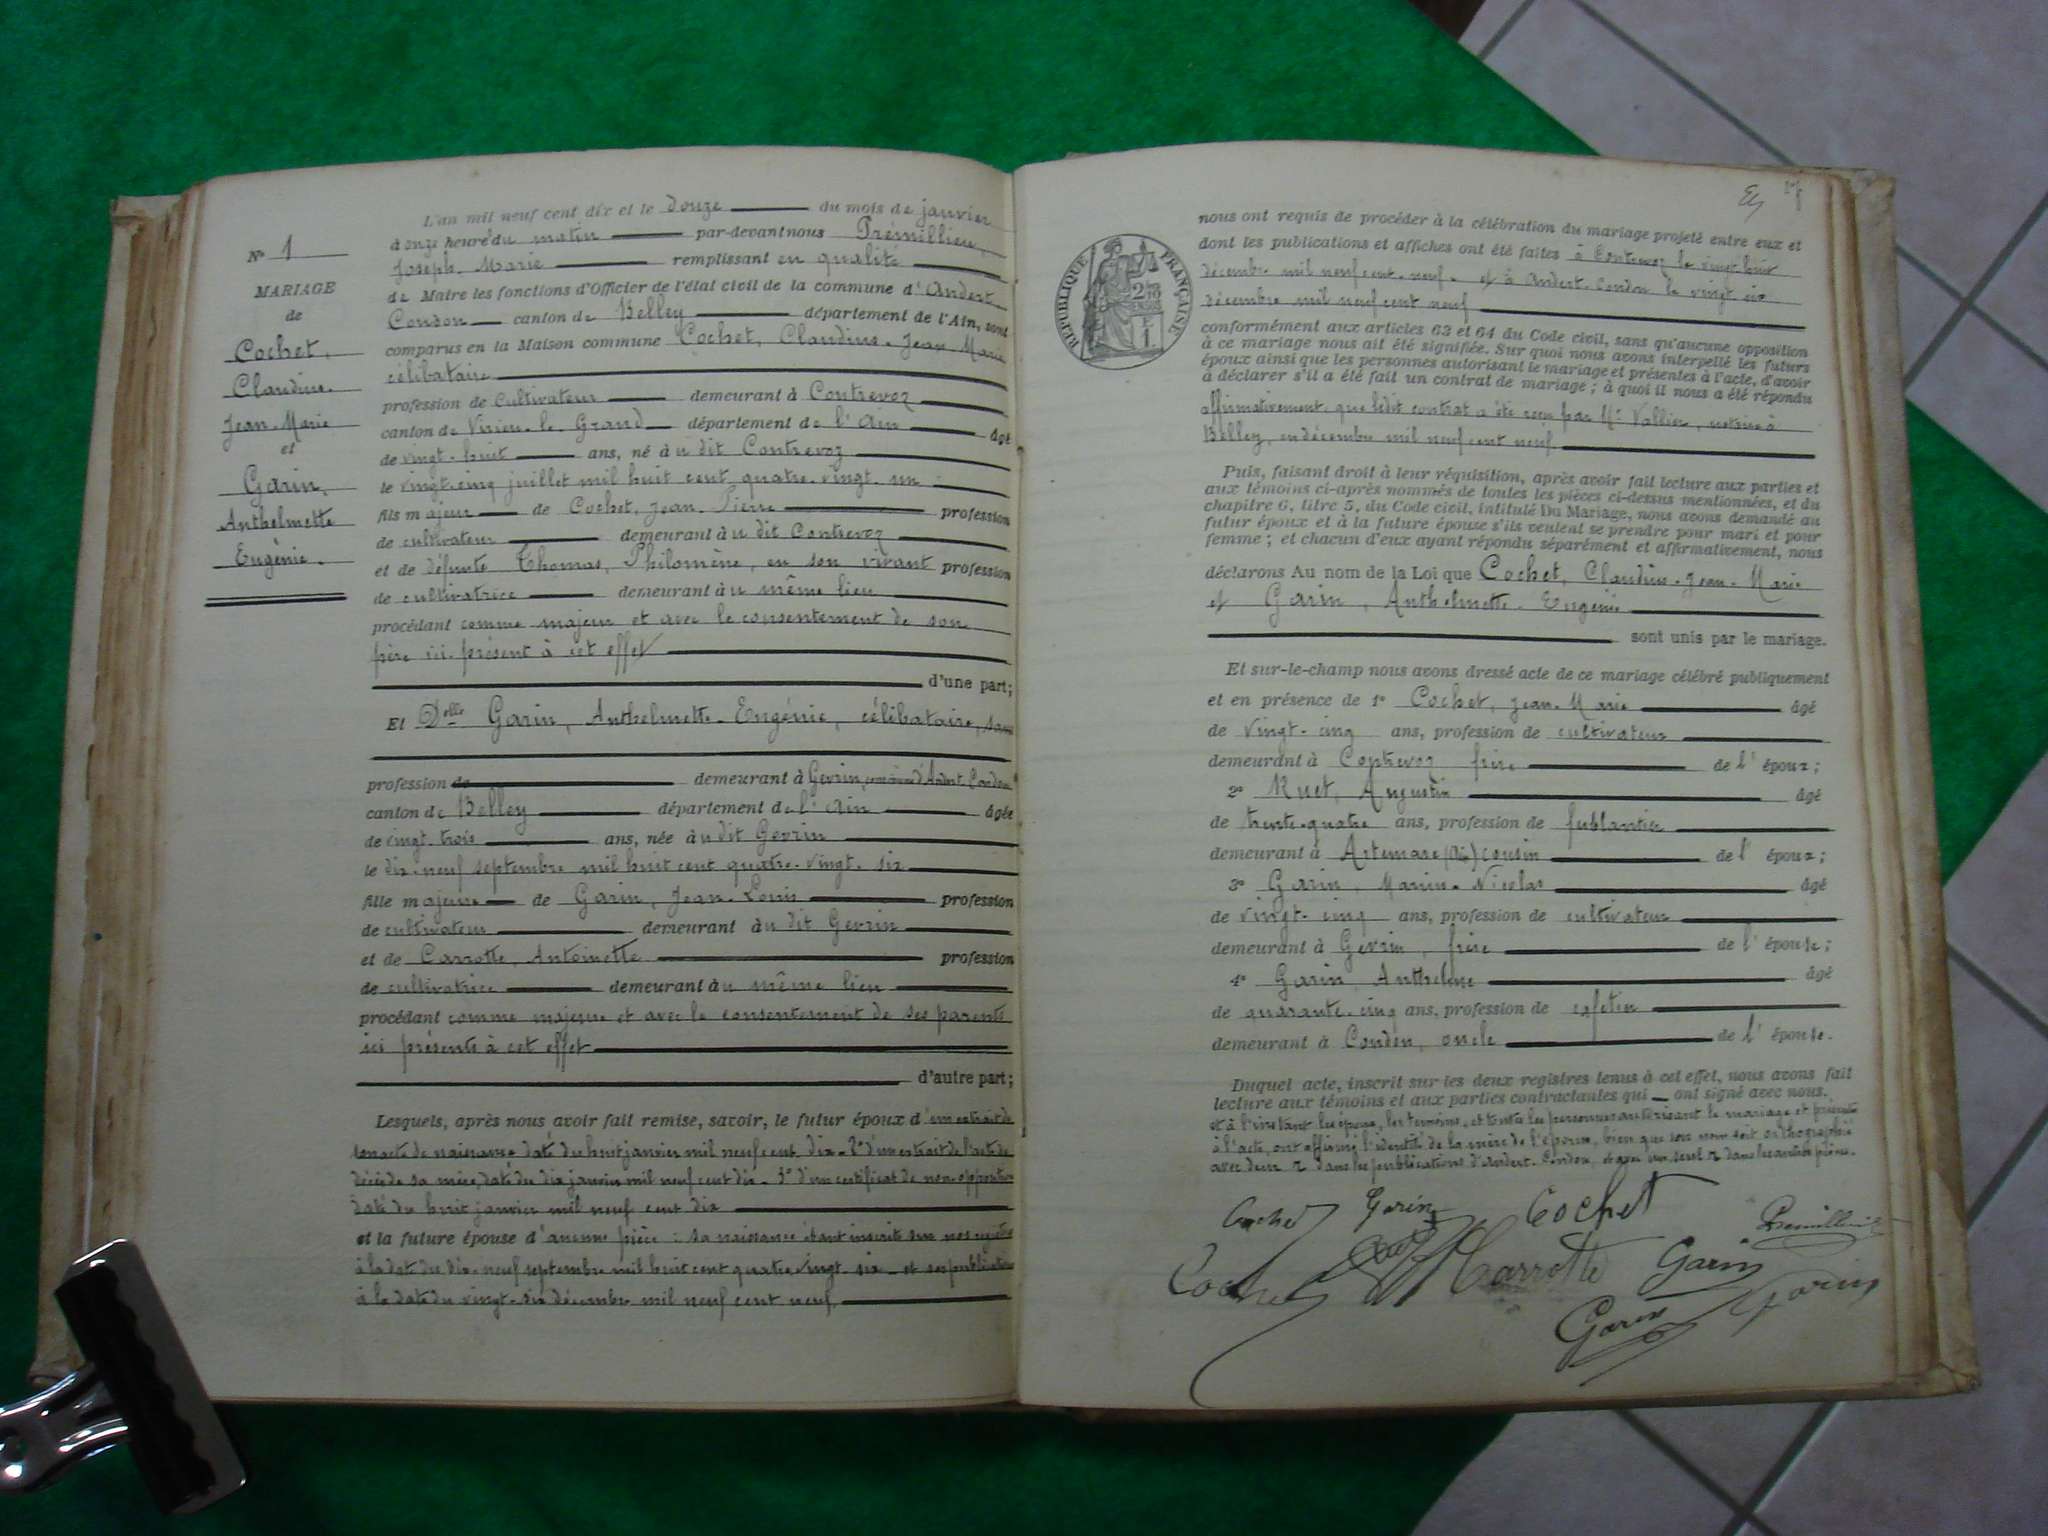 N° 1
MARIAGE
de
Cochet,
Claudius.
Jean. Marie
et
Garin,
Anthelmette
Eugénie.
L'an mil neuf cent dix et le douze du mois de janvier
à onze heures du matin par-devant nous Prémillieu,
Joseph. Marie remplissant en qualité
de Maire les fonctions d'Officier de l'état civil de la commune d'Andert
Condon canton de Belley département de l'Ain, sont
comparus en la Maison commune Cochet, Claudius. Jean Marie
célibataire
profession de cultivateur demeurant à Contrevoz
canton de Virieu. le. Grand département de l'Ain âgé
de vingt. huit ans, né à u dit Contrevoz
le vingt. cinq juillet mil huit cent quatre. vingt. un
fils majeur de Cochet, Jean. Pierre profession
de cultivateur demeurant à u dit Contrevoz
et de défunte Thomas, Philomène, en son vivant profession
de cultivatrice demeurant à u même lieu
procédant comme majeur et avec le consentement de son
père ici. présent à cet effet
d'une part;
Et Delle Garin, Anthelmette. Eugénie, célibataire, sans
profession de demeurant à Gevrin, commune d'Andert. Condon
canton de Belley département de l'Ain âgée
de vingt. trois ans, née à u dit Gevrin
le dix. neuf septembre mil huit cent quatre. vingt. six
fille majeure de Garin, Jean. Louis profession
de cultivateur demeurant à u dit Gevrin
et de Carrotte, Antoinette profession
de cultivatrice demeurant à u même lieu
procédant comme majeure et avec le consentement de ses parents
ici présents à cet effet
d'autre part;
Lesquels, après nous avoir fait remise, savoir, le futur époux d'un extrait de
son acte de naissance daté du huit janvier mil neuf cent dix. 2° d'un extrait de l'acte de
décès de sa mère, daté du dix janvier mil neuf cent dix. 3° d'un certificat de non-opposition
daté du huit janvier mil neuf cent dix
et la future épouse d'aucune pièce : sa naissance étant inscrite sur nos registres
à la date du dix. neuf septembre mil huit cent quatre. vingt. six et ses publications
à la date du vingt. six décembre mil neuf cent neuf.
RÉPUBLIQUE FRANÇAISE
nous ont requis de procéder à la célébration du mariage projeté entre eux et
dont les publications et affiches ont été faites à Contrevoz le vingt. huit
décembre mil neuf cent. neuf. et à Andert. Condon le vingt six
décembre mil neuf cent neuf
conformément aux articles 63 et 64 du Code civil, sans qu'aucune opposition
à ce mariage nous ait été signifiée. Sur quoi nous avons interpellé les futurs
époux ainsi que les personnes autorisant le mariage et présentes à l'acte, d'avoir
à déclarer s'il a été fait un contrat de mariage ; à quoi il nous a été répondu
affirmativement. que ledit contrat a été reçu par Me Vallier, notaire à
Belley, en décembre mil neuf cent neuf.
Puis, faisant droit à leur réquisition, après avoir fait lecture aux parties et
aux témoins ci-après nommés de toutes les pièces ci-dessus mentionnées, et du
chapitre 6, titre 5, du Code civil, intitulé Du Mariage, nous avons demandé au
futur époux et à la future épouse s'ils veulent se prendre pour mari et pour
femme ; et chacun d'eux ayant répondu séparément et affirmativement, nous
déclarons Au nom de la Loi que Cochet, Claudius. Jean. Marie
et Garin, Anthelmette. Eugénie
sont unis par le mariage.
Et sur-le-champ nous avons dressé acte de ce mariage célébré publiquement
et en présence de 1° Cochet, Jean. Marie âgé
de vingt. cinq ans, profession de cultivateur
demeurant à Contrevoz frère de l'époux ;
2° Ruet, Augustin âgé
de trente. quatre ans, profession de ferblantier
demeurant à Artemare (Ain) cousin de l'époux ;
3° Garin, Marius. Nicolas âgé
de vingt. cinq ans, profession de cultivateur
demeurant à Gevrin, frère de l'épouse ;
4° Garin, Anthelme âgé
de quarante. cinq ans, profession de cafetier
demeurant à Condon, oncle de l'épouse.
Duquel acte, inscrit sur les deux registres tenus à cet effet, nous avons fait
lecture aux témoins et aux parties contractantes qui ont signé avec nous.
et à l'instant les époux, les témoins, et toutes les personnes autorisant le mariage et présentes
à l'acte, ont affirmé l'identité de la mère de l'épouse, bien que son nom soit orthographié
avec deux r dans les publications d'Andert. Condon, et avec un seul r dans les autres pièces.
Cochet Garin Cochet Premillieu
Cochet Carrotte Garin
Garin Garin